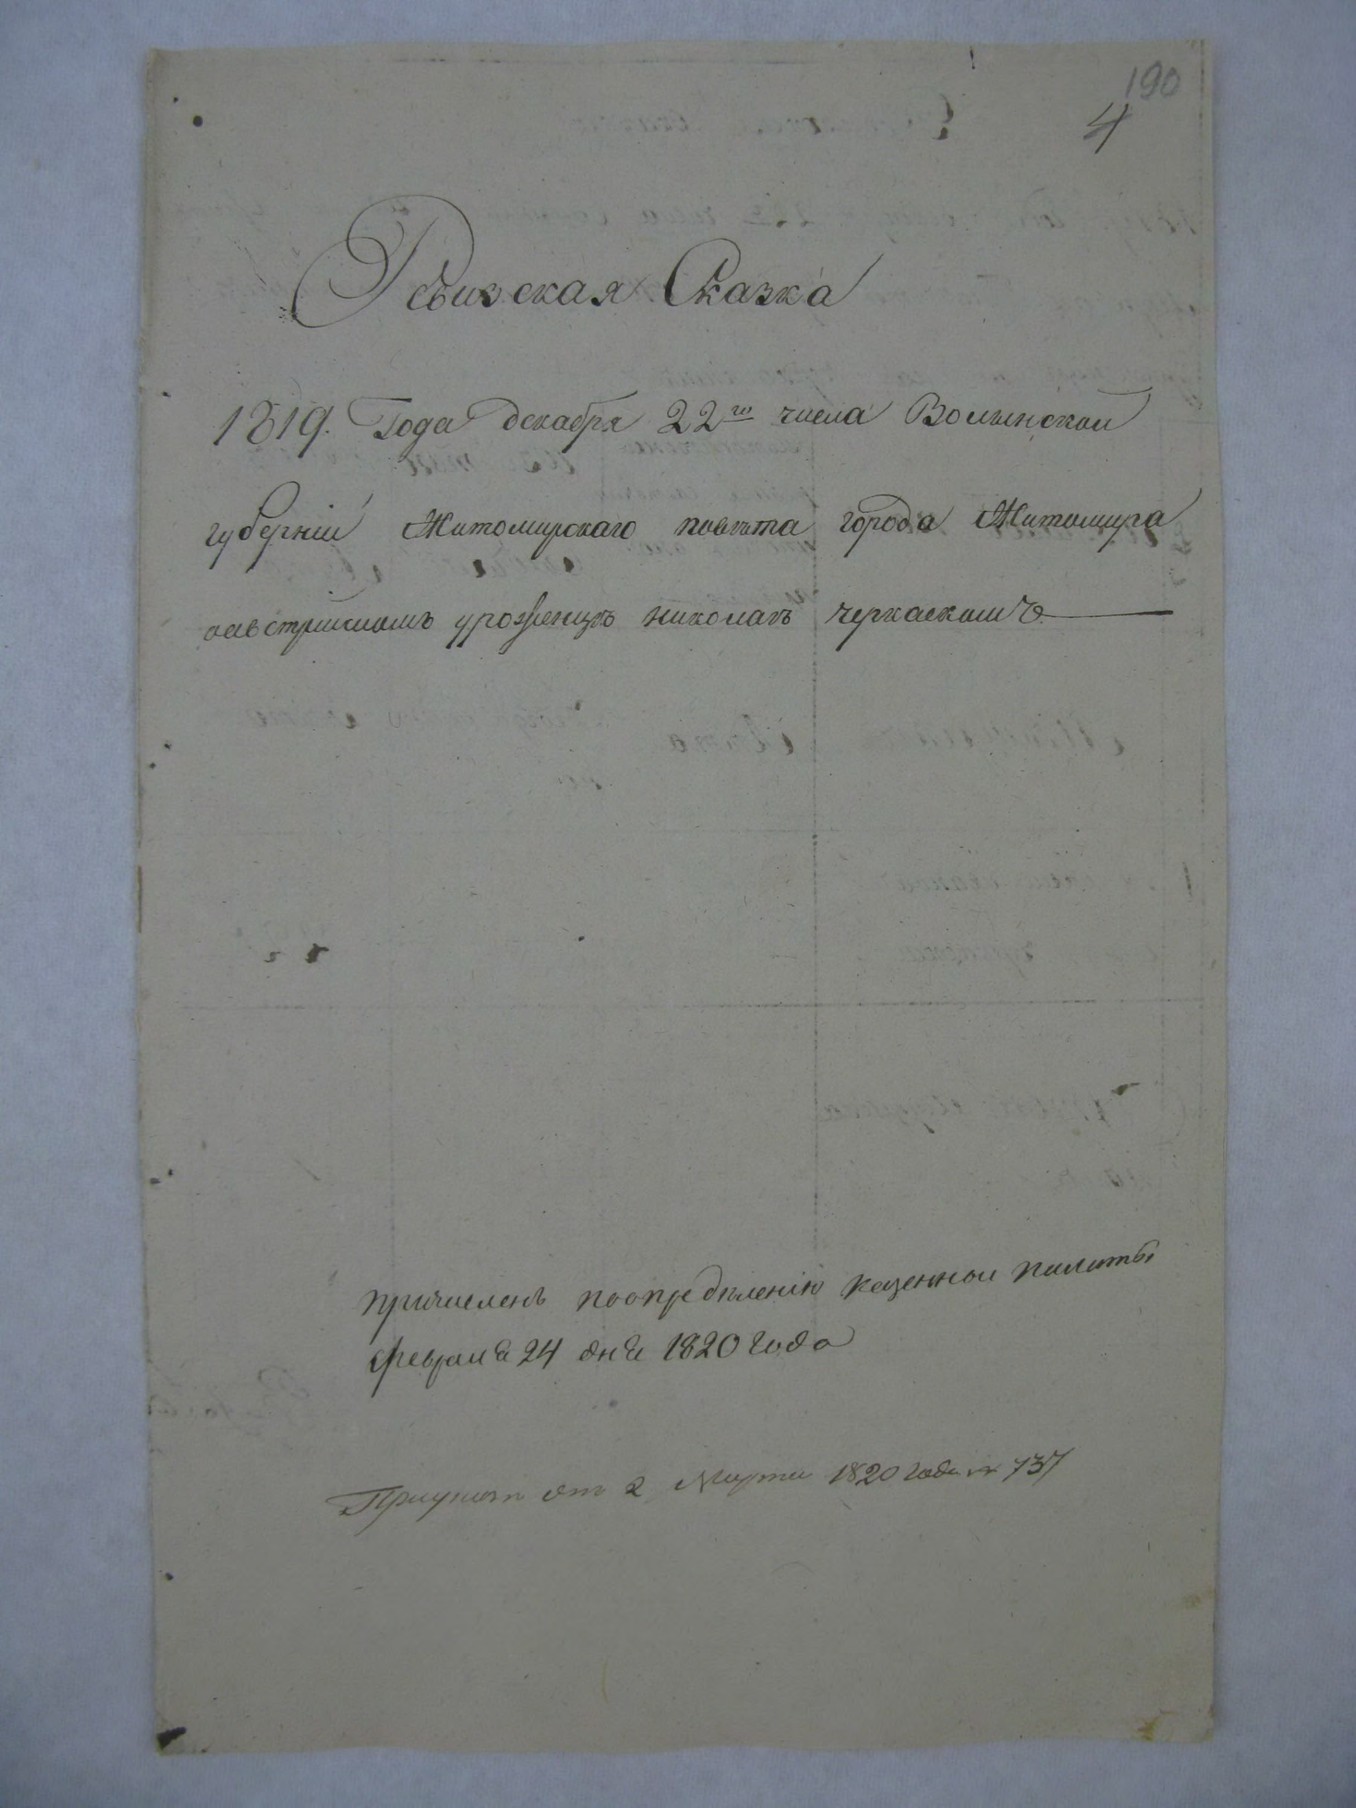 190
4
Ревизская Сказка
1819. Года декабря 22го числа Волынской
губернiи Житомирскаго повѣта города Житомира
оавстрийскомъ уроженцѣ николаѣ черкаскомъ
причисленъ поопредѣленiю казенной палаты
февраля 24 дня 1820 года
от 2 Марта 1820 года № 737